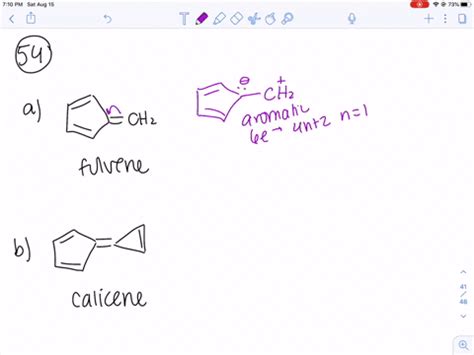 7:10 PM Sat Aug 15
73%
54
a)
=CH2
fulvene
⊖
+
CH2
aromatic
6e → 4n+2 n=1
b)
calicene
41
/
48